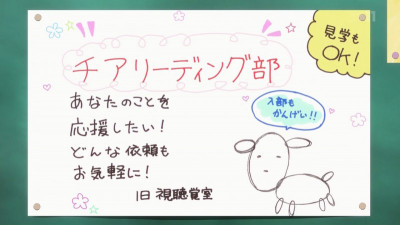 見学も
OK!
チアリーディング部
あなたのことを
応援したい!
どんな依頼も
お気軽に!
旧視聴覚室
入部も
かんげい!!